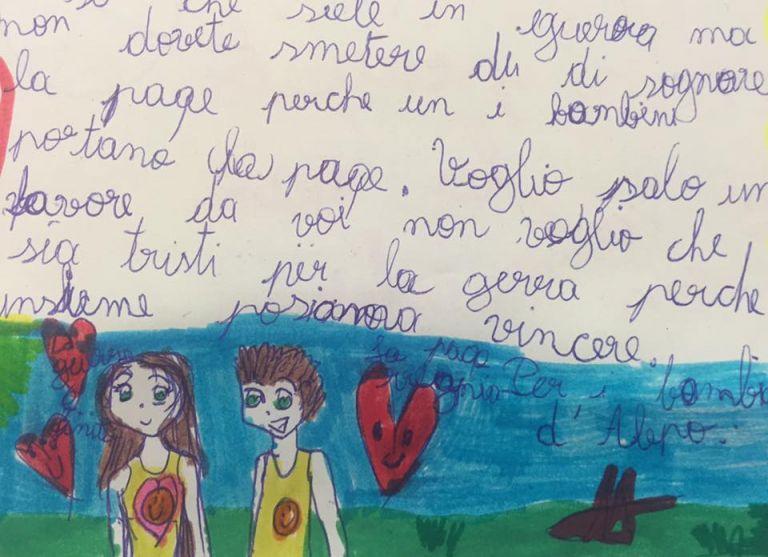 che siete in guerra ma
non dovete smetere di sognare
la pace perche un i bambini
portano la pace. Voglio palo un
favore da voi non voglio che
sia tristi per la gerra perche
insieme posiamo vincere.
La guerra è finita
La pace
Per i bambi
d'Alepo.